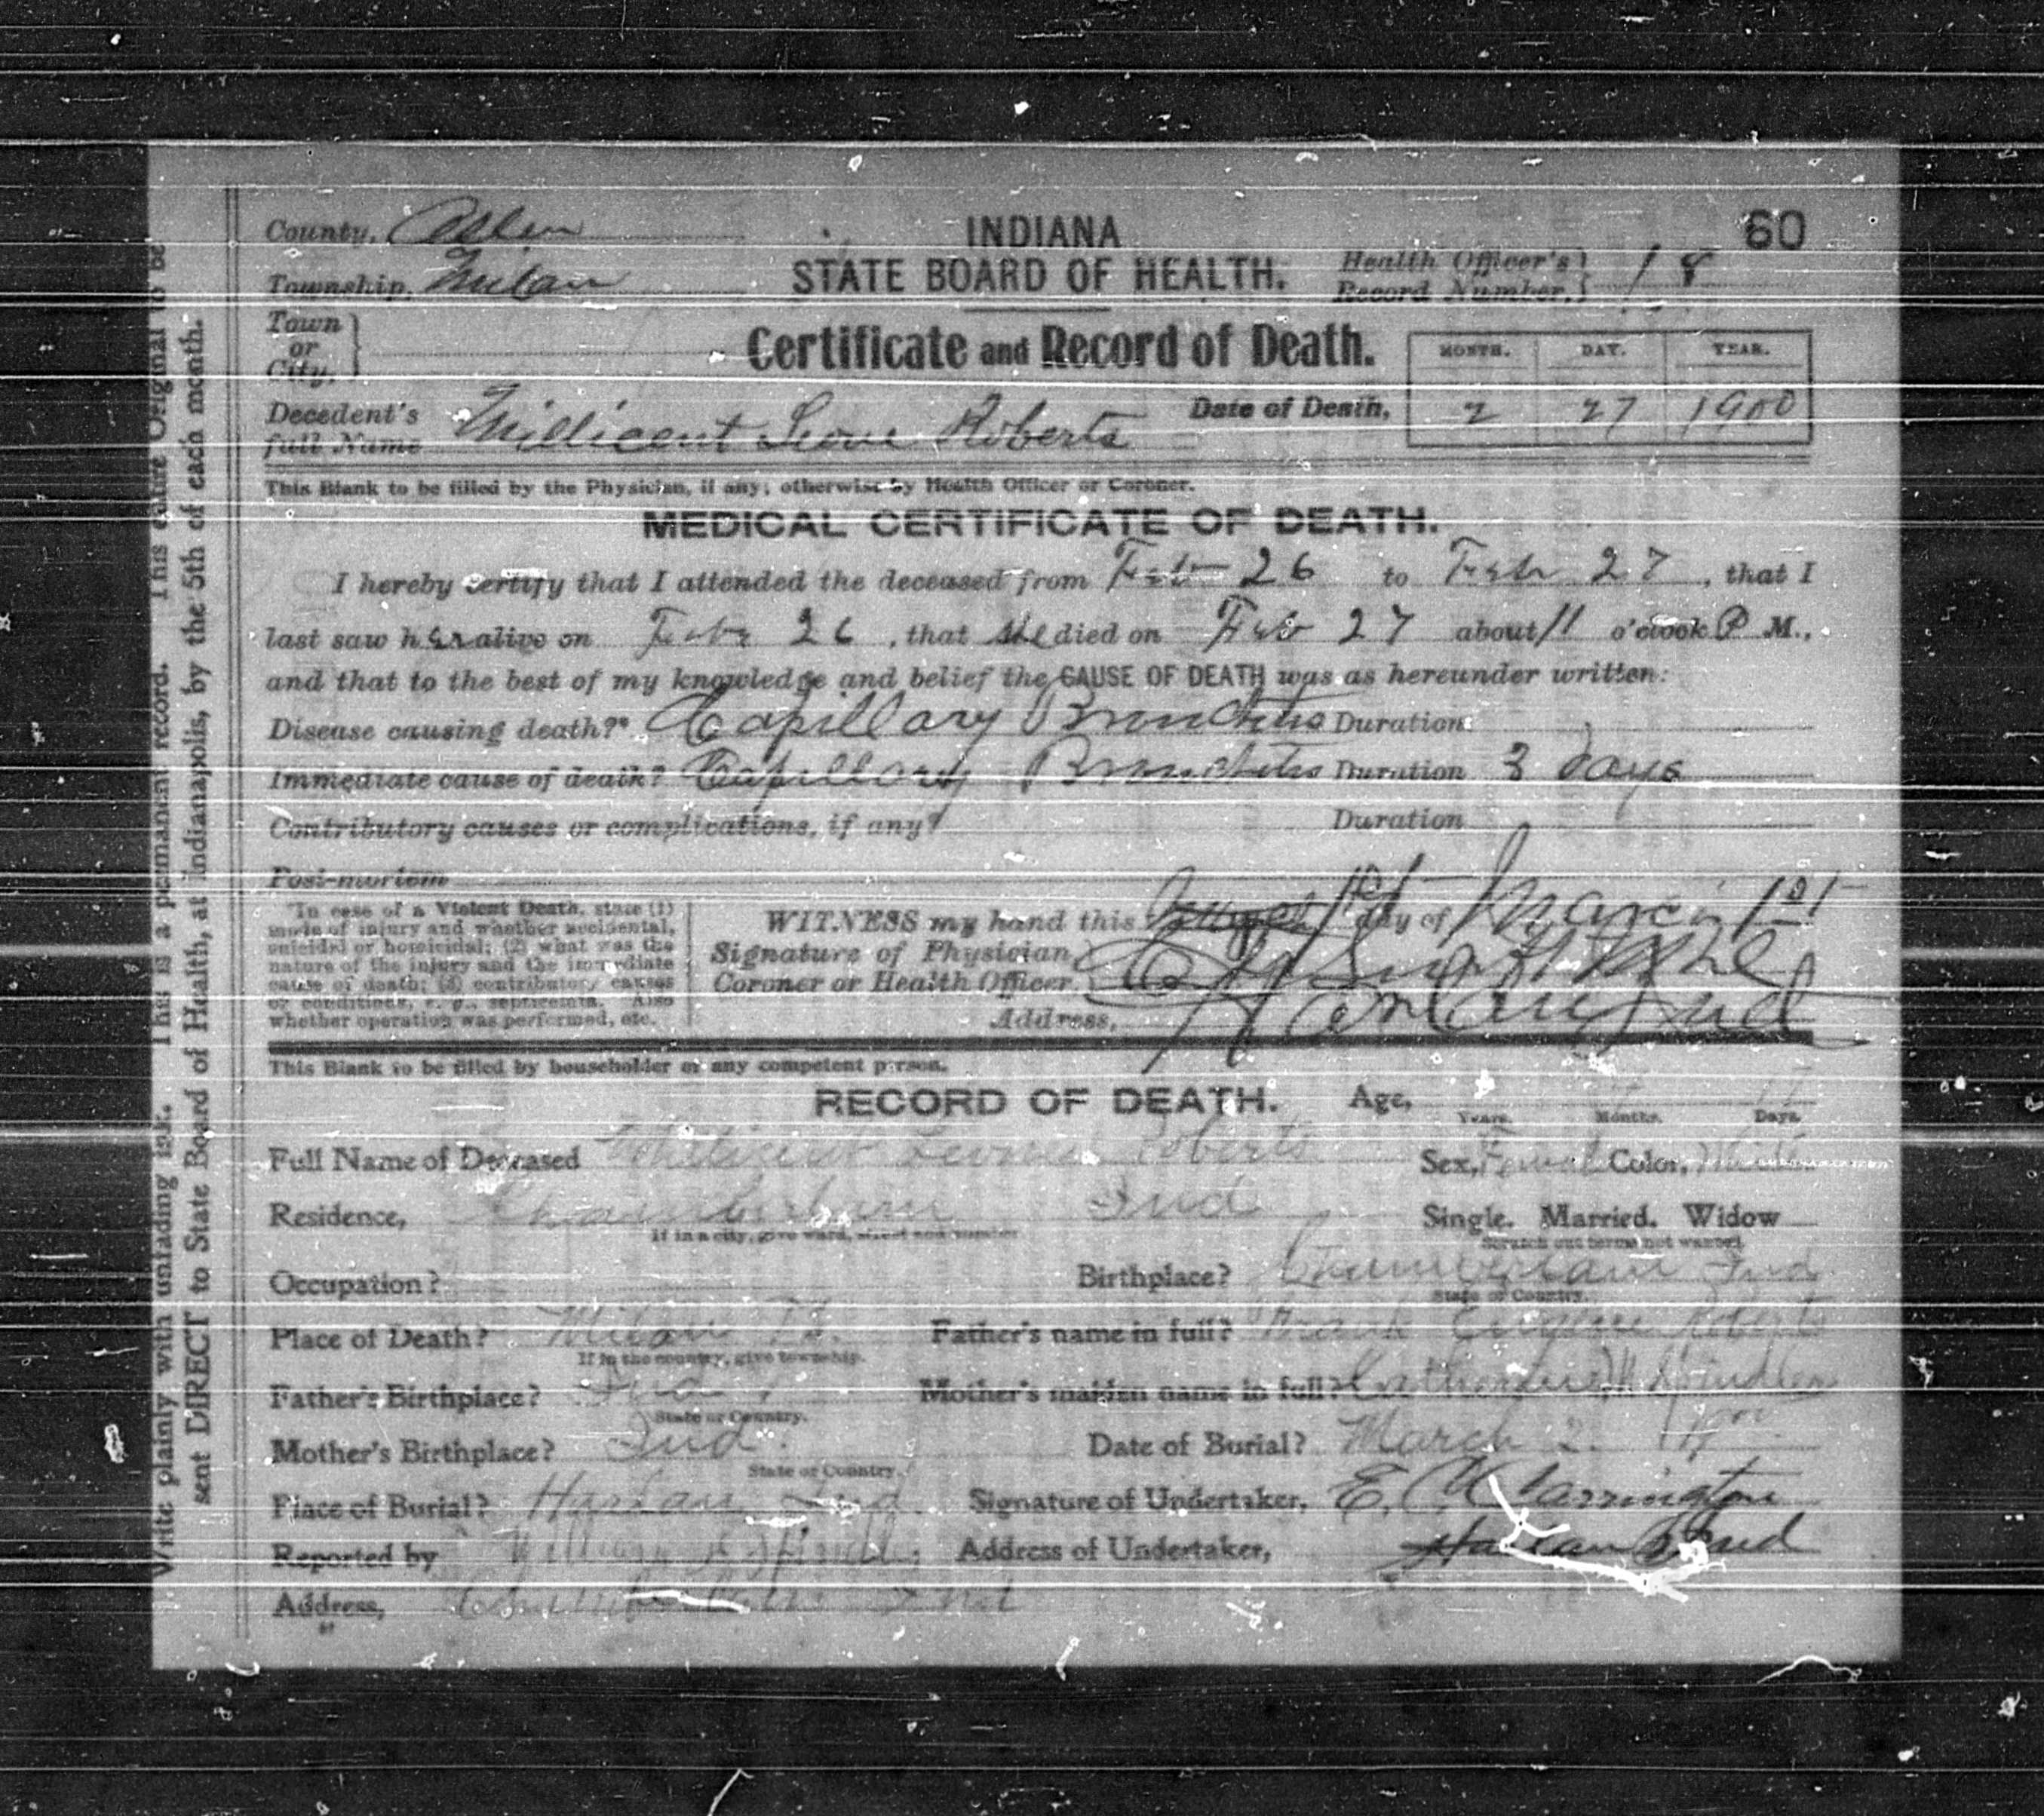 60
County, Allen
INDIANA
Township, Milan
STATE BOARD OF HEALTH.
Health Officer's Record Number, 18
Town or City,
Certificate and Record of Death.
MONTH. DAY. YEAR.
Decedent's full Name Millicent Leone Roberts
Date of Death, 2 27 1900
This Blank to be filled by the Physician, if any; otherwise by Health Officer or Coroner.
MEDICAL CERTIFICATE OF DEATH.
I hereby certify that I attended the deceased from Feb 26 to Feb 27, that I
last saw her alive on Feb 26, that she died on Feb 27 about 11 o'clock P M.,
and that to the best of my knowledge and belief the CAUSE OF DEATH was as hereunder written:
Disease causing death?* Capillary Bronchitis Duration
Immediate cause of death? Capillary Bronchitis Duration 3 days
Contributory causes or complications, if any? Duration
Post-mortem
*In case of a Violent Death, state (1)
mode of injury and whether accidental,
suicidal or homicidal; (2) what was the
nature of the injury and the immediate
cause of death; (3) contributory causes
or conditions, e. g., septicemia. Also
whether operation was performed, etc.
WITNESS my hand this 1st day of March 1st
Signature of Physician,
Coroner or Health Officer.
Address, Harlan Ind
This Blank to be filled by householder or any competent person.
RECORD OF DEATH. Age,
Years. Months. Days.
Full Name of Deceased Roberts
Sex, Female Color, White
Residence, Chamberlain Ind
If in a city, give ward, street and number
Single. Married. Widow
Scratch out terms not wanted.
Occupation?
Birthplace? Chamberlain Ind
State or Country.
Place of Death? Milan Tp.
If in the country, give township.
Father's name in full? Frank Eugene Roberts
Father's Birthplace? Ind
State or Country.
Mother's maiden name in full? Spindler
Mother's Birthplace? Ind.
State or Country.
Date of Burial? March 2 1900
Place of Burial? Harlan Ind
Signature of Undertaker, E. Carrington
Reported by William Spindler
Address of Undertaker, Harlan Ind
Address, Chamberlain Ind
Write plainly with unfading ink. This is a permanent record. This entire Original to be
sent DIRECT to State Board of Health, at Indianapolis, by the 5th of each month.